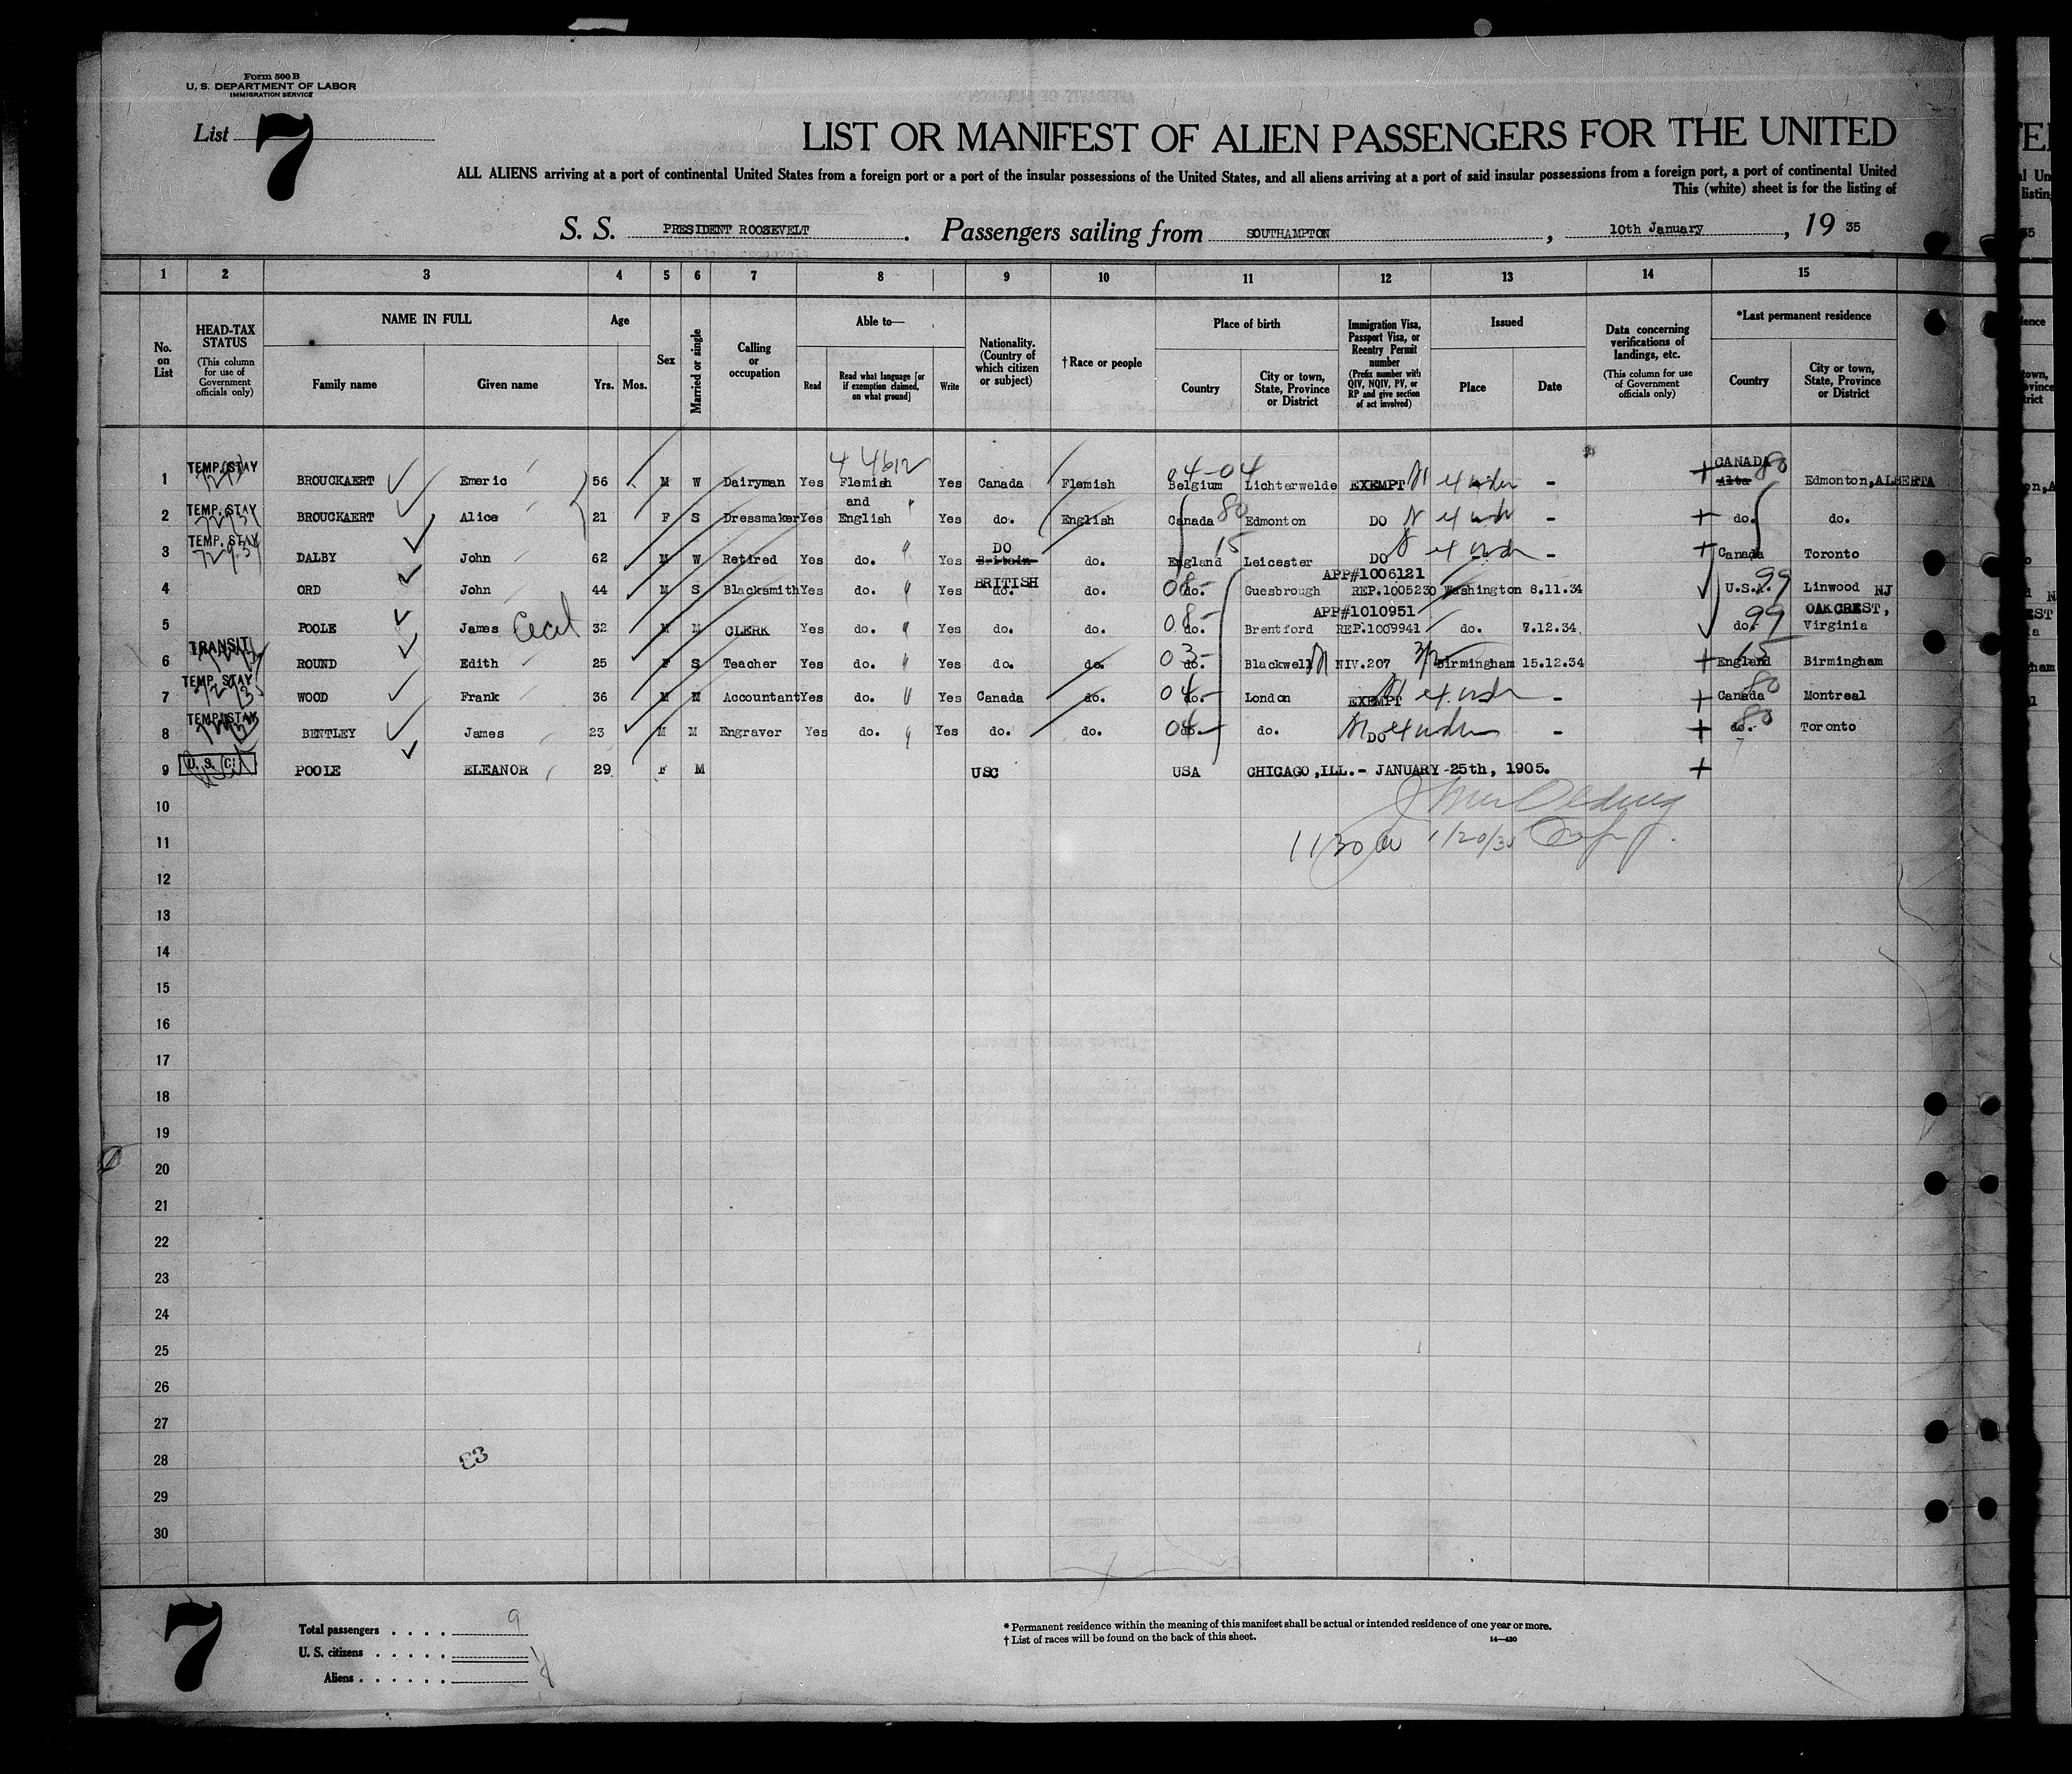 Form 500 B
U. S. DEPARTMENT OF LABOR
IMMIGRATION SERVICE
List 7
LIST OR MANIFEST OF ALIEN PASSENGERS FOR THE UNITED
ALL ALIENS arriving at a port of continental United States from a foreign port or a port of the insular possessions of the United States, and all aliens arriving at a port of said insular possessions from a foreign port, a port of continental United
This (white) sheet is for the listing of
S. S. PRESIDENT ROOSEVELT. Passengers sailing from SOUTHAMPTON, 10th January, 19 35
1 2 3 4 5 6 7 8 9 10 11 12 13 14 15
No. on List
HEAD-TAX STATUS (This column for use of Government officials only)
NAME IN FULL
Family name Given name
Age
Yrs. Mos.
Sex
Married or single
Calling or occupation
Able to—
Read
Read what language [or if exemption claimed, on what ground]
Write
Nationality. (Country of which citizen or subject)
†Race or people
Place of birth
Country
City or town, State, Province or District
Immigration Visa, Passport Visa, or Reentry Permit number (Prefix number with QIV, NQIV, PV, or RP and give section of act involved)
Issued
Place Date
Data concerning verifications of landings, etc. (This column for use of Government officials only)
*Last permanent residence
Country
City or town, State, Province or District
1 TEMP. STAY BROUCKAERT Emeric 56 M W Dairyman Yes Flemish Yes Canada Flemish Belgium Lichterwelde EXEMPT - CANADA Alta Edmonton, ALBERTA
and
2 TEMP. STAY BROUCKAERT Alice 21 F S Dressmaker Yes English Yes do. English Canada 80 Edmonton DO - do. do.
3 TEMP. STAY DALBY John 62 M W Retired Yes do. Yes DO Britain do. England 15 Leicester DO - Canada Toronto
APP#1006121
4 ORD John 44 M S Blacksmith Yes do. Yes BRITISH do. do. do. Guesbrough REP.1005230 Washington 8.11.34 U.S.A. 99 Linwood NJ
APP#1010951
5 POOLE James Cecil 32 M M CLERK Yes do. Yes do. do. do. Brentford REP.1009941 do. 7.12.34 do. 99 OAKCREST, Virginia
6 TRANSIT ROUND Edith 25 F S Teacher Yes do. Yes do. do. do. Blackwell NIV.207 Birmingham 15.12.34 England 15 Birmingham
7 TEMP. STAY WOOD Frank 36 M M Accountant Yes do. Yes Canada do. do. London EXEMPT - Canada 80 Montreal
8 TEMP. STAY BENTLEY James 23 M M Engraver Yes do. Yes do. do. do. do. DO - do. 80 Toronto
9 U. S. C. POOLE ELEANOR 29 F M USC USA CHICAGO, ILL. - JANUARY 25th, 1905.
10
11 1/20/35
12
13
14
15
16
17
18
19
20
21
22
23
24
25
26
27
28
29
30
7
Total passengers . . . . 9
U. S. citizens . . . . .
Aliens . . . . . .
* Permanent residence within the meaning of this manifest shall be actual or intended residence of one year or more.
† List of races will be found on the back of this sheet.
14—430